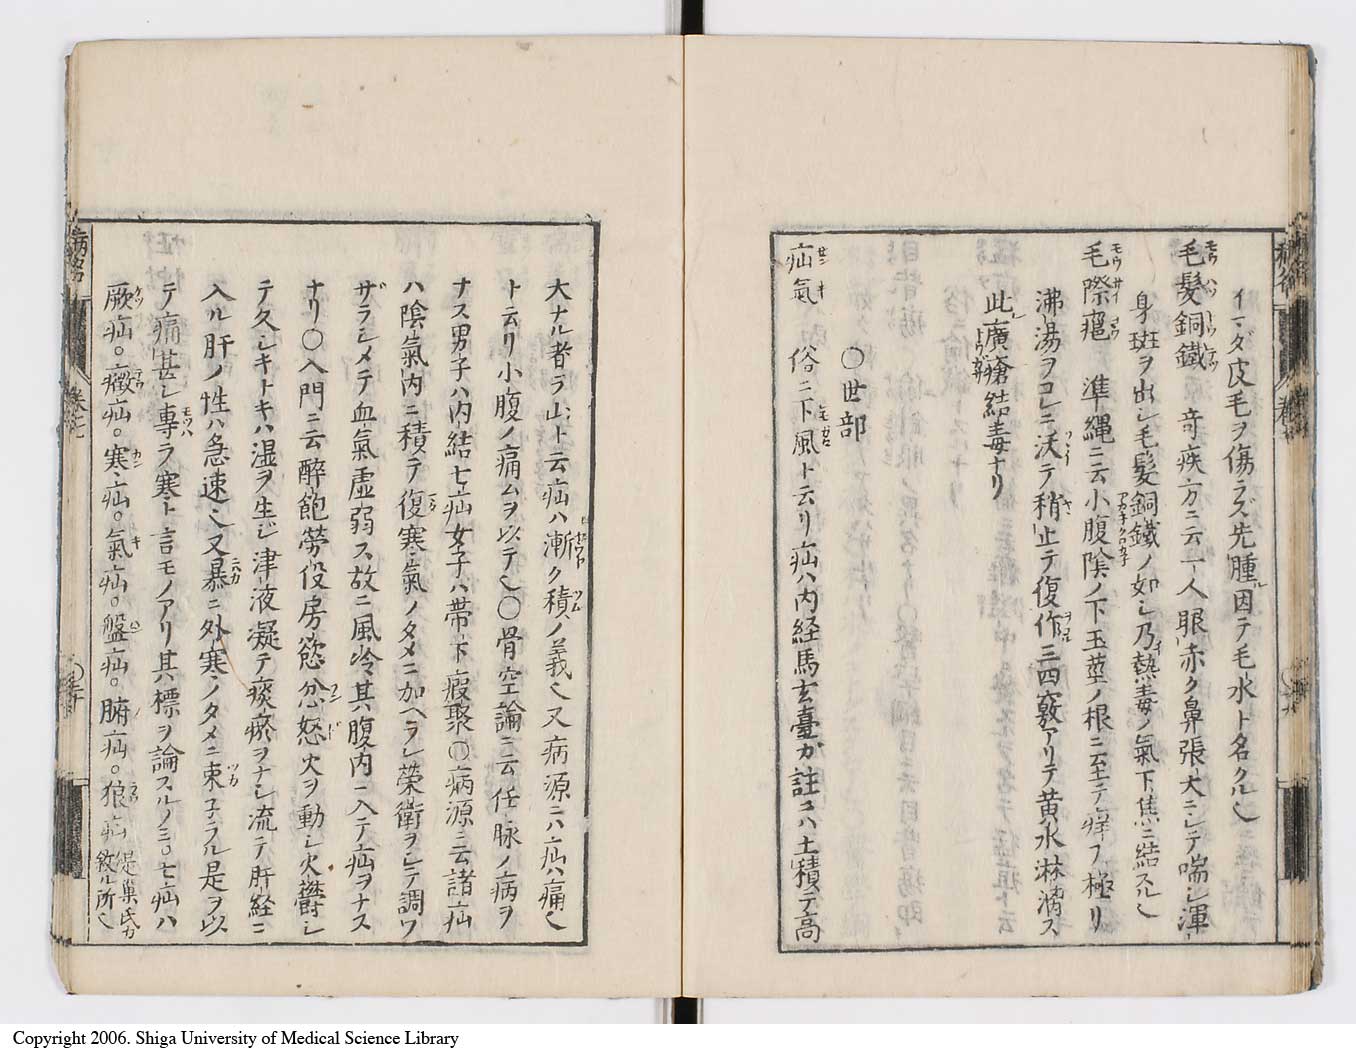 イマダ皮毛ヲ傷ラズ先腫ル因テ毛水ト名クル也
毛髪銅鐵 竒疾方ニ云一人眼赤ク鼻張大ニシテ喘シ渾
身斑ヲ出シ毛髪銅鐵ノ如シ乃熱毒ノ氣下焦ニ結スル也
毛際瘡 準縄ニ云小腹隂ノ下玉莖ノ根ニ至テ痒フ極リ
沸湯ヲコレニ沃テ稍止テ復作三四竅アリテ黄水淋漓ス
此レ廣瘡結毒ナリ
〇世部
疝氣 俗ニ下風ト云リ疝ハ内経馬玄臺ガ註ニハ土積テ高
大ナル者ヲ山ト云疝ハ漸ク積ノ義也又病源ニハ疝ハ痛也
ト云リ小腹ノ痛ムヲ以テ也〇骨空論ニ云任脉ノ病ヲ
ナス男子ハ内結七疝女子ハ帯下瘕聚〇病源ニ云諸疝
ハ陰氣内ニ積テ復寒氣ノタメニ加ヘラレ榮衛ヲシテ調ワ
ザラシメテ血氣虚弱ス故ニ風冷其腹内ニ入テ疝ヲナス
ナリ〇入門ニ云醉飽勞伇房慾忿怒火ヲ動シ火欝シ
テ久シキトキハ湿ヲ生ジ津液凝テ痰瘀ヲナシ流テ肝経ニ
入ル肝ノ性ハ急速也又暴ニ外寒ノタメニ束子ラル是ヲ以
テ痛甚シ専ラ寒ト言モノアリ其標ヲ論スルノミ〇七疝ハ
厥疝。癥疝。寒疝。氣疝。盤疝。腑疝。狼疝 是巣氏カ
敘ル所也
病名
巻之七